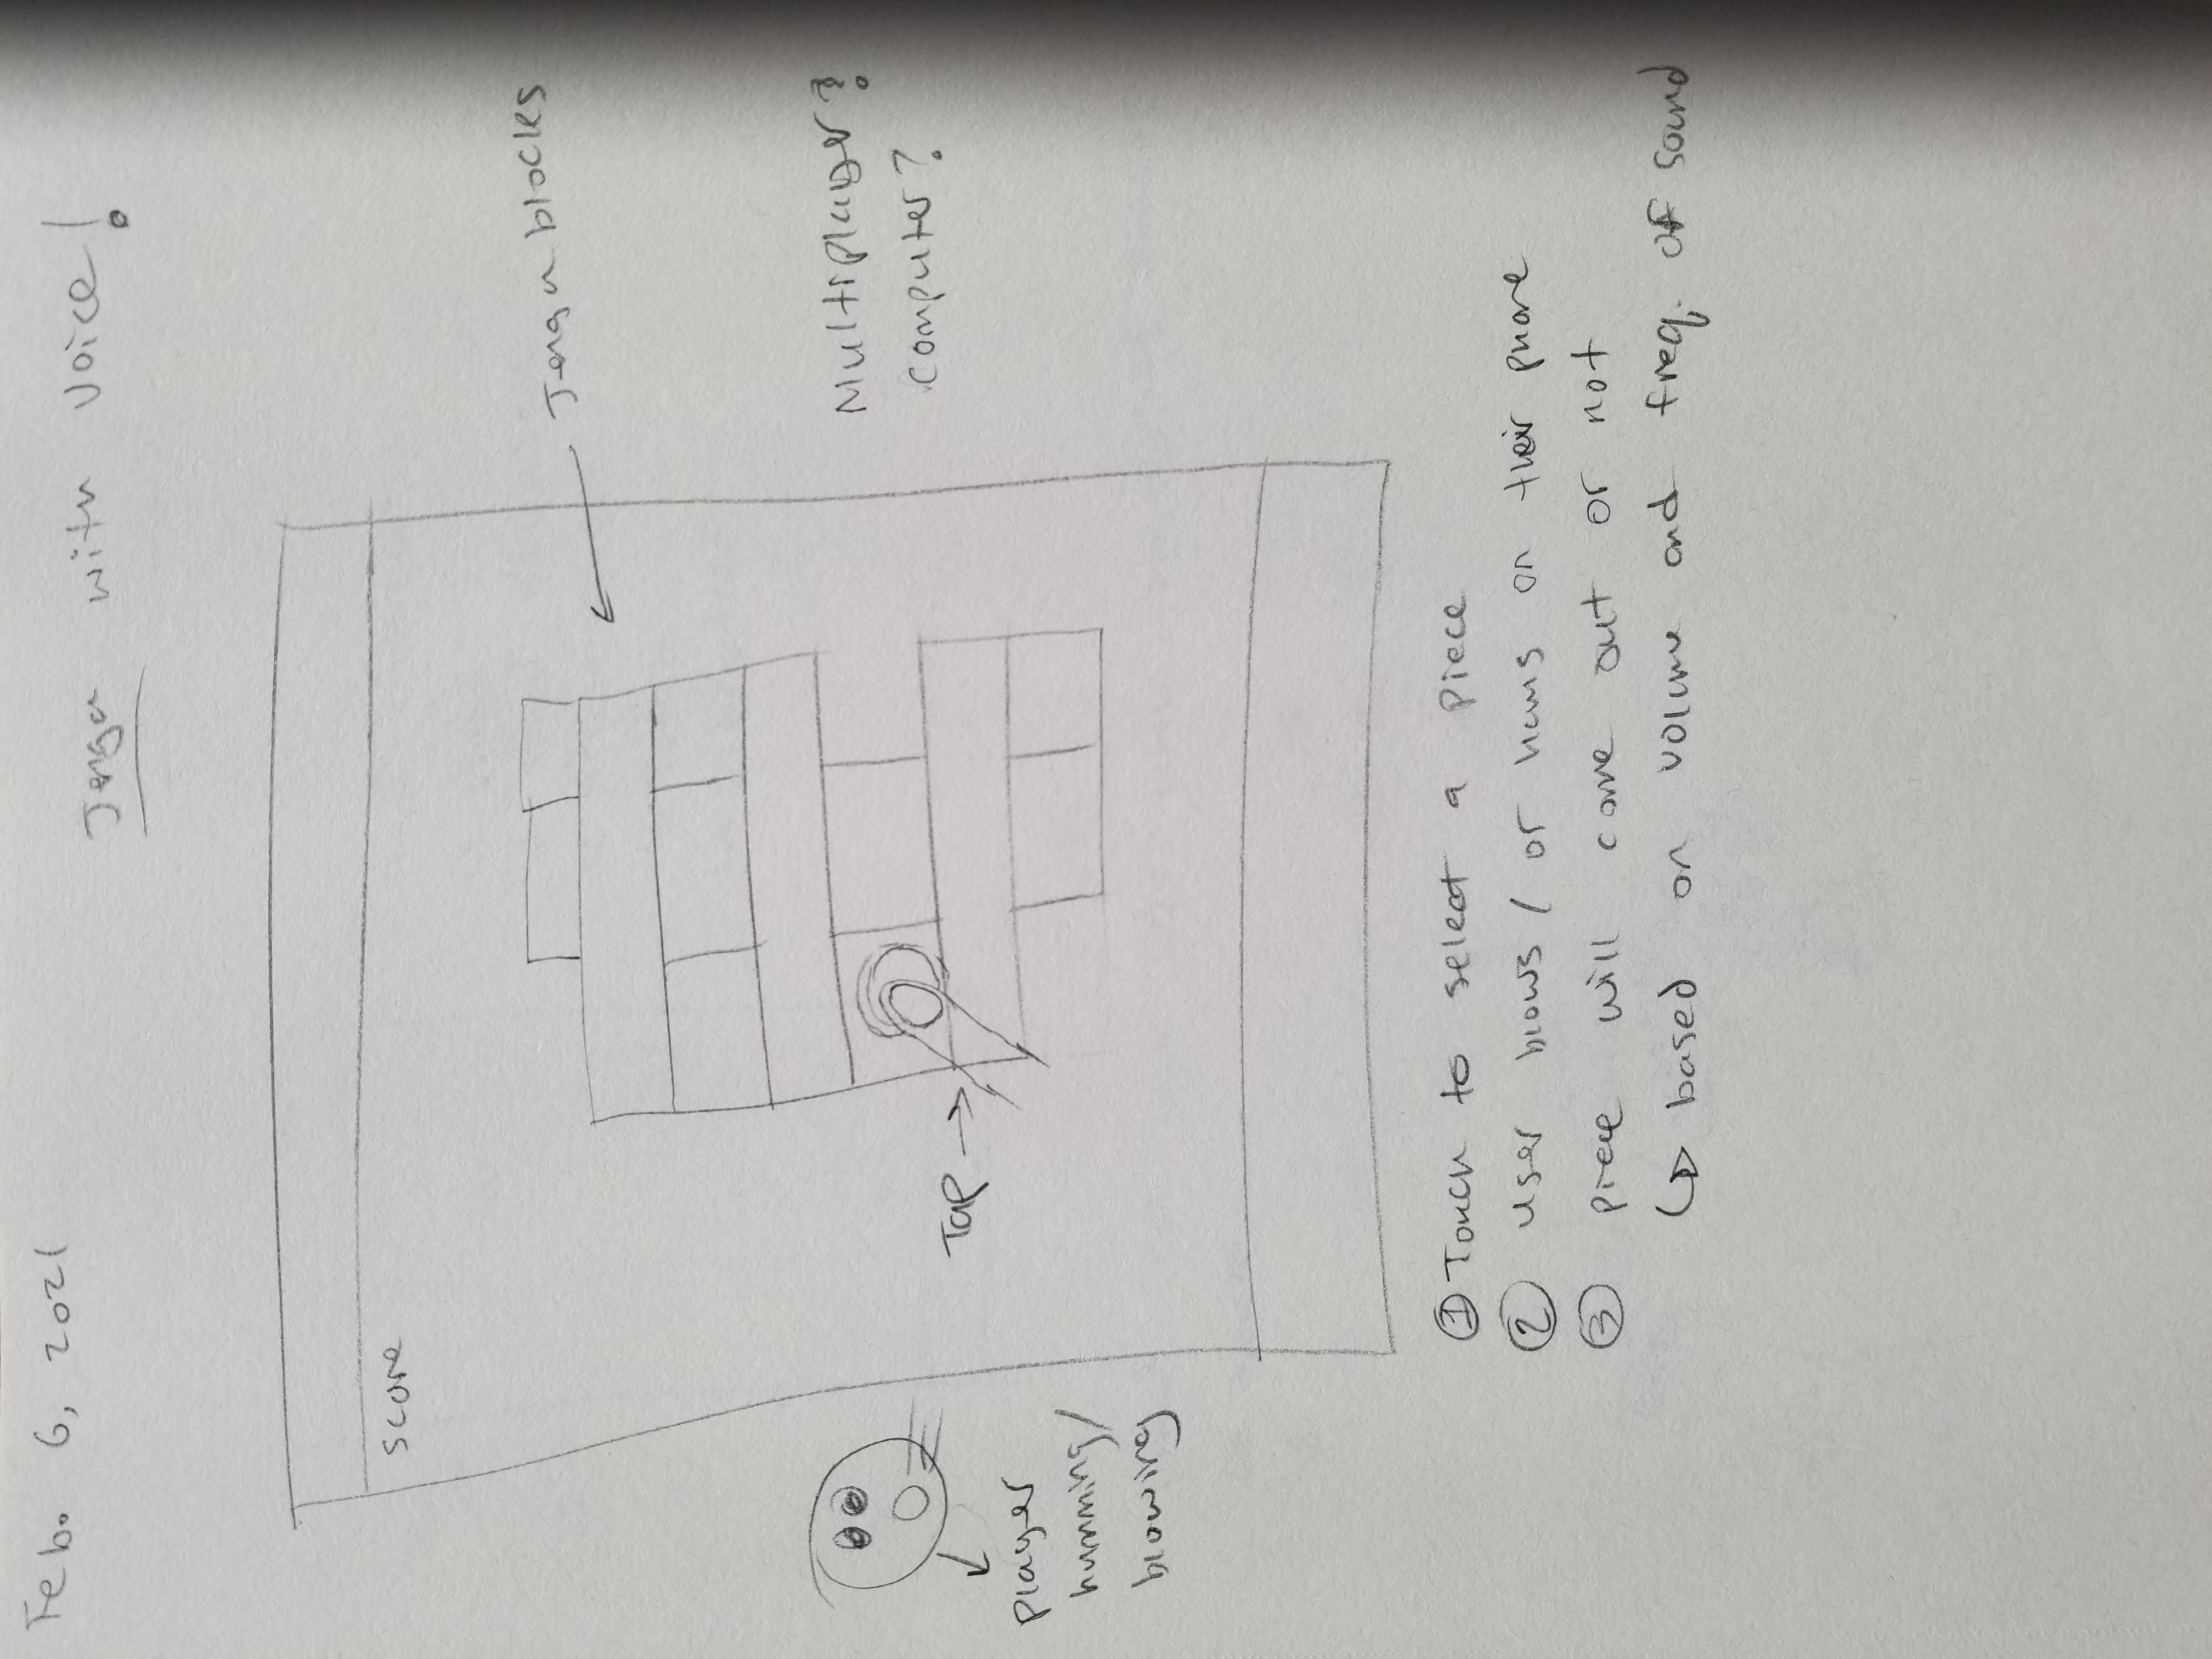 Feb. 6, 2021
Jenga with voice!
score
Jenga blocks
Multiplayer?
computer?
Tap
player
humming/
blowing
① Touch to select a piece
② user blows / or hums on their phone
③ piece will come out or not
↳ based on volume and freq. of sound